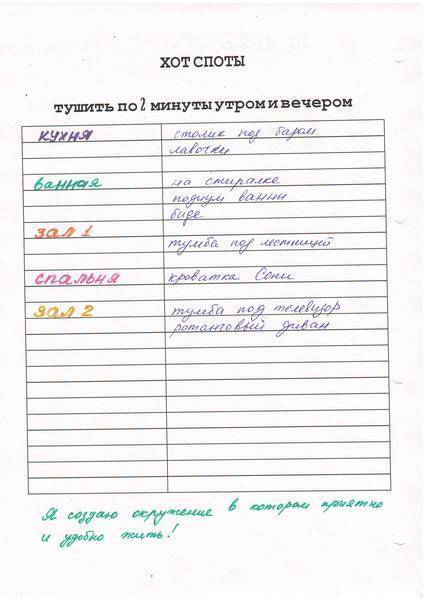 ХОТ СПОТЫ
тушить по 2 минуты утром и вечером
кухня столик под баром
лавочки
ванная на стиралке
подиум ванны
биде
зал 1
тумба под лестницей
спальня кроватка Сони
зал 2 тумба под телевизор
ротанговый диван
Я создаю окружение в котором приятно
и удобно жить!